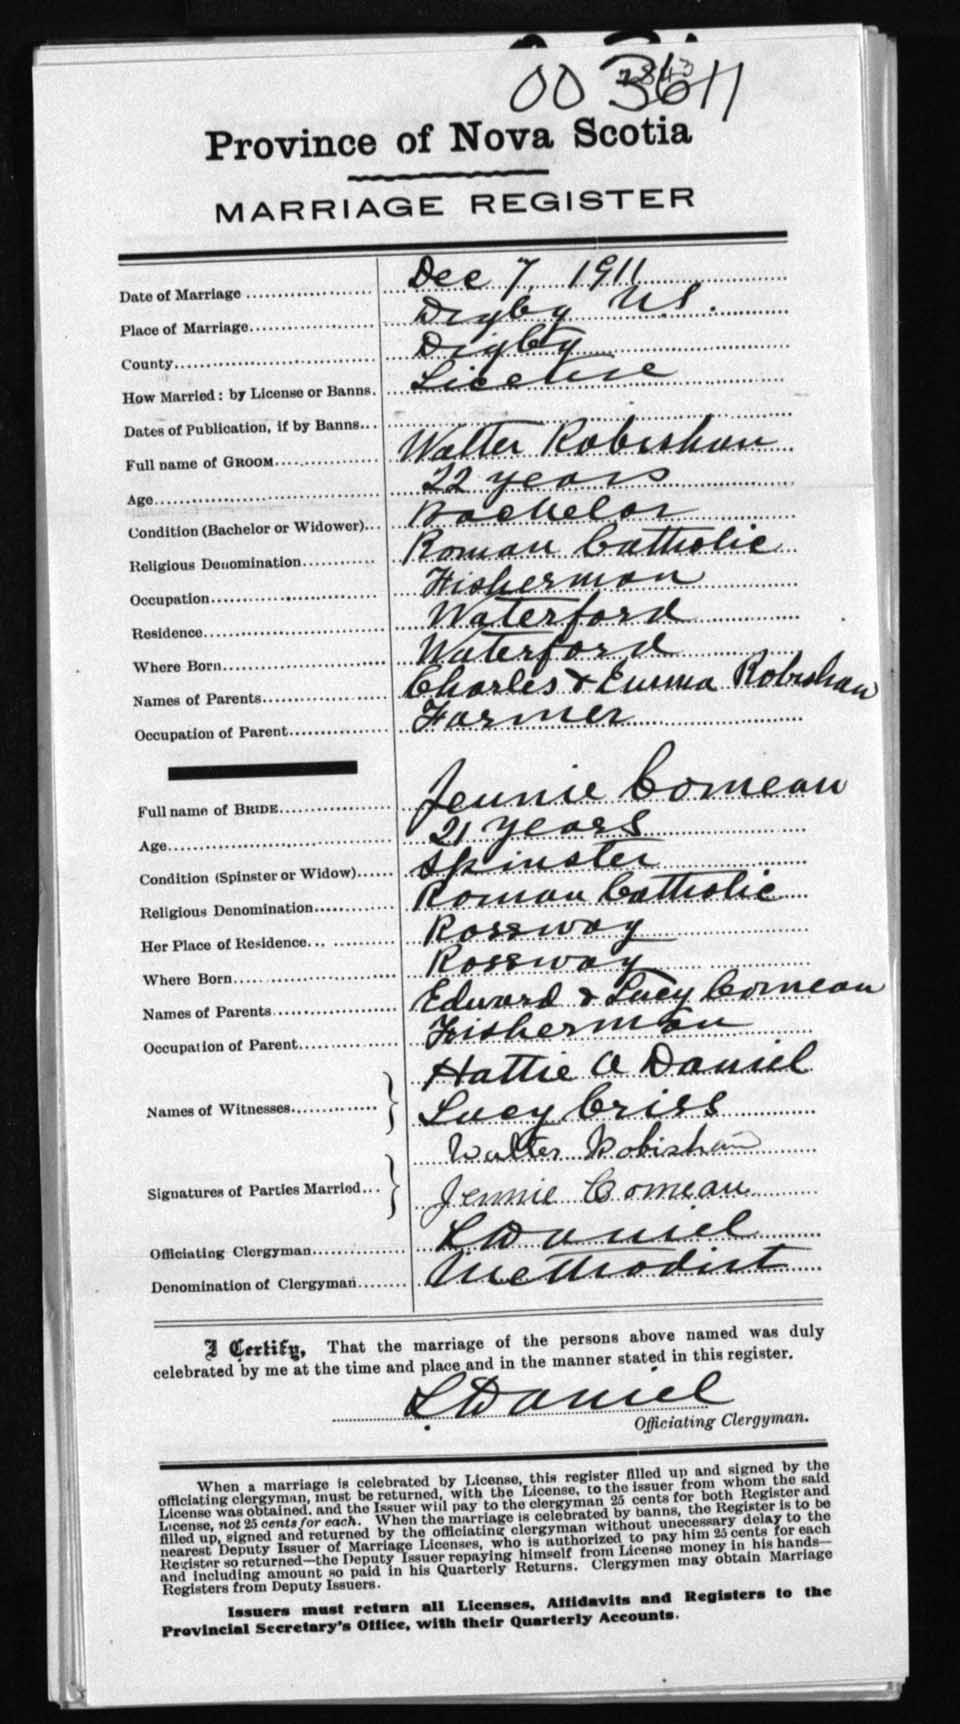 003611
Province of Nova Scotia
MARRIAGE REGISTER
Date of Marriage Dec 7, 1911
Place of Marriage Digby N.S.
County Digby
How Married: by License or Banns. License
Dates of Publication, if by Banns
Full name of GROOM Walter Robishau
Age 22 years
Condition (Bachelor or Widower) Bachelor
Religious Denomination Roman Catholic
Occupation Fisherman
Residence Waterford
Where Born Waterford
Names of Parents Charles & Emma Robishau
Occupation of Parent Farmer
Full name of BRIDE Jennie Comeau
Age 21 years
Condition (Spinster or Widow) Spinster
Religious Denomination Roman Catholic
Her Place of Residence Rossway
Where Born Rossway
Names of Parents Edward & Lucy Comeau
Occupation of Parent Fisherman
Names of Witnesses Hattie A Daniel
Lucy Criss
Signatures of Parties Married Walter Robishau
Jennie Comeau
Officiating Clergyman L Daniel
Denomination of Clergyman Methodist
I Certify, That the marriage of the persons above named was duly
celebrated by me at the time and place and in the manner stated in this register.
L Daniel
Officiating Clergyman.
When a marriage is celebrated by License, this register filled up and signed by the
officiating clergyman, must be returned, with the License, to the issuer from whom the said
License was obtained, and the Issuer will pay to the clergyman 25 cents for both Register and
License, not 25 cents for each. When the marriage is celebrated by banns, the Register is to be
filled up, signed and returned by the officiating clergyman without unecessary delay to the
nearest Deputy Issuer of Marriage Licenses, who is authorized to pay him 25 cents for each
Register so returned—the Deputy Issuer repaying himself from License money in his hands—
and including amount so paid in his Quarterly Returns. Clergymen may obtain Marriage
Registers from Deputy Issuers.
Issuers must return all Licenses, Affidavits and Registers to the
Provincial Secretary's Office, with their Quarterly Accounts.